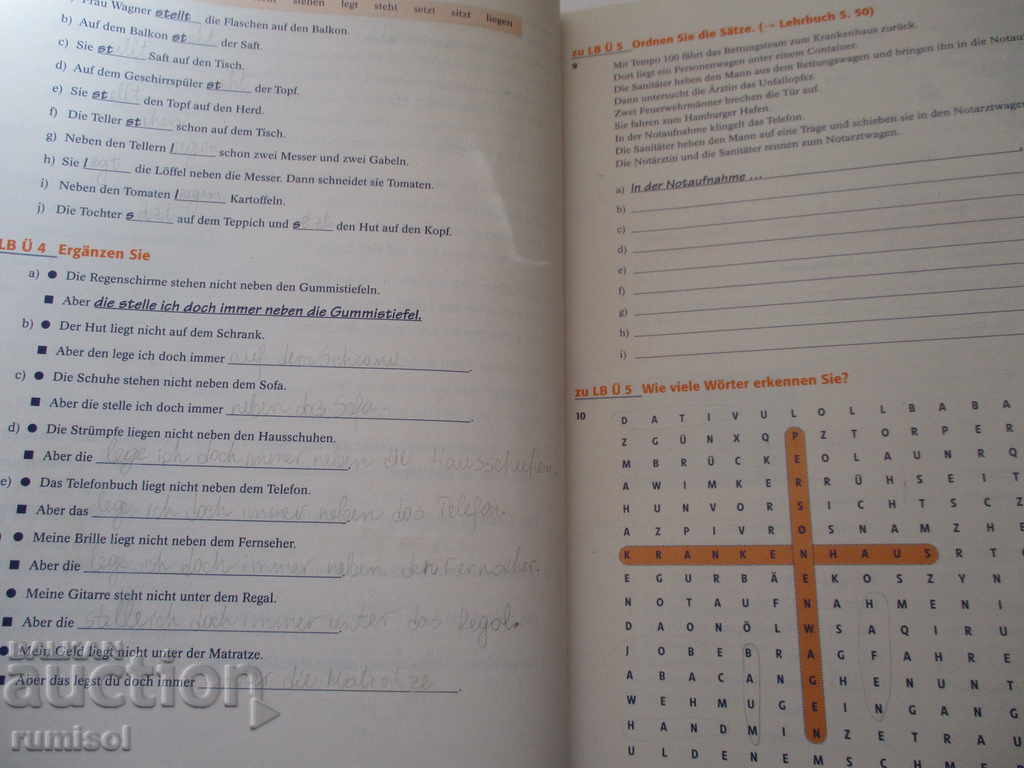 stehen legt steht setzt sitzt liegen
Frau Wagner stellt die Flaschen auf den Balkon.
b) Auf dem Balkon st der Saft.
c) Sie st Saft auf den Tisch.
d) Auf dem Geschirrspüler st der Topf.
e) Sie st den Topf auf den Herd.
f) Die Teller st schon auf dem Tisch.
g) Neben den Tellern l schon zwei Messer und zwei Gabeln.
h) Sie l die Löffel neben die Messer. Dann schneidet sie Tomaten.
i) Neben den Tomaten l Kartoffeln.
j) Die Tochter s auf dem Teppich und s den Hut auf den Kopf.
LB Ü 4 Ergänzen Sie
a) ● Die Regenschirme stehen nicht neben den Gummistiefeln.
■ Aber die stelle ich doch immer neben die Gummistiefel.
b) ● Der Hut liegt nicht auf dem Schrank.
■ Aber den lege ich doch immer auf den Schrank.
c) ● Die Schuhe stehen nicht neben dem Sofa.
■ Aber die stelle ich doch immer neben das Sofa.
d) ● Die Strümpfe liegen nicht neben den Hausschuhen.
■ Aber die lege ich doch immer neben die Hausschuhen.
e) ● Das Telefonbuch liegt nicht neben dem Telefon.
■ Aber das lege ich doch immer neben das Telefon.
● Meine Brille liegt nicht neben dem Fernseher.
■ Aber die lege ich doch immer neben den Fernseher.
● Meine Gitarre steht nicht unter dem Regal.
■ Aber die stelle ich doch immer unter das Regal.
● Mein Geld liegt nicht unter der Matratze.
■ Aber das legst du doch immer die Matratze.
BALKAN
auction
rumisol
zu LB Ü 5 Ordnen Sie die Sätze. (→ Lehrbuch S. 50)
9
Mit Tempo 100 fährt das Rettungsteam zum Krankenhaus zurück.
Dort liegt ein Personenwagen unter einem Container.
Die Sanitäter heben den Mann aus dem Rettungswagen und bringen ihn in die Notauf
Dann untersucht die Ärztin das Unfallopfer.
Zwei Feuerwehrmänner brechen die Tür auf.
Sie fahren zum Hamburger Hafen.
In der Notaufnahme klingelt das Telefon.
Die Sanitäter heben den Mann auf eine Trage und schieben sie in den Notarztwagen
Die Notärztin und die Sanitäter rennen zum Notarztwagen.
a) In der Notaufnahme ...
b)
c)
d)
e)
f)
g)
h)
i)
zu LB Ü 5 Wie viele Wörter erkennen Sie?
10
D A T I V U L O L L B A B A
Z G Ü N X Q P Z T O R P E R
M B R Ü C K E O L A U N R Q
A W I M K E R R Ü H S E I T
H U N V O R S I C H T S C Z
A Z P I V R O S N A M Z H E
K R A N K E N H A U S R T
E G U R B Ä E K O S Z Y N
N O T A U F N A H M E N I
D A O N Ö L W S A Q I R U
J O B E B R A G F A H R E
A B A C A N G H E N U N T
W E H M U G E I N G A N G
H A N D M I N Z E T R A U
U L D E N E M S C H M E